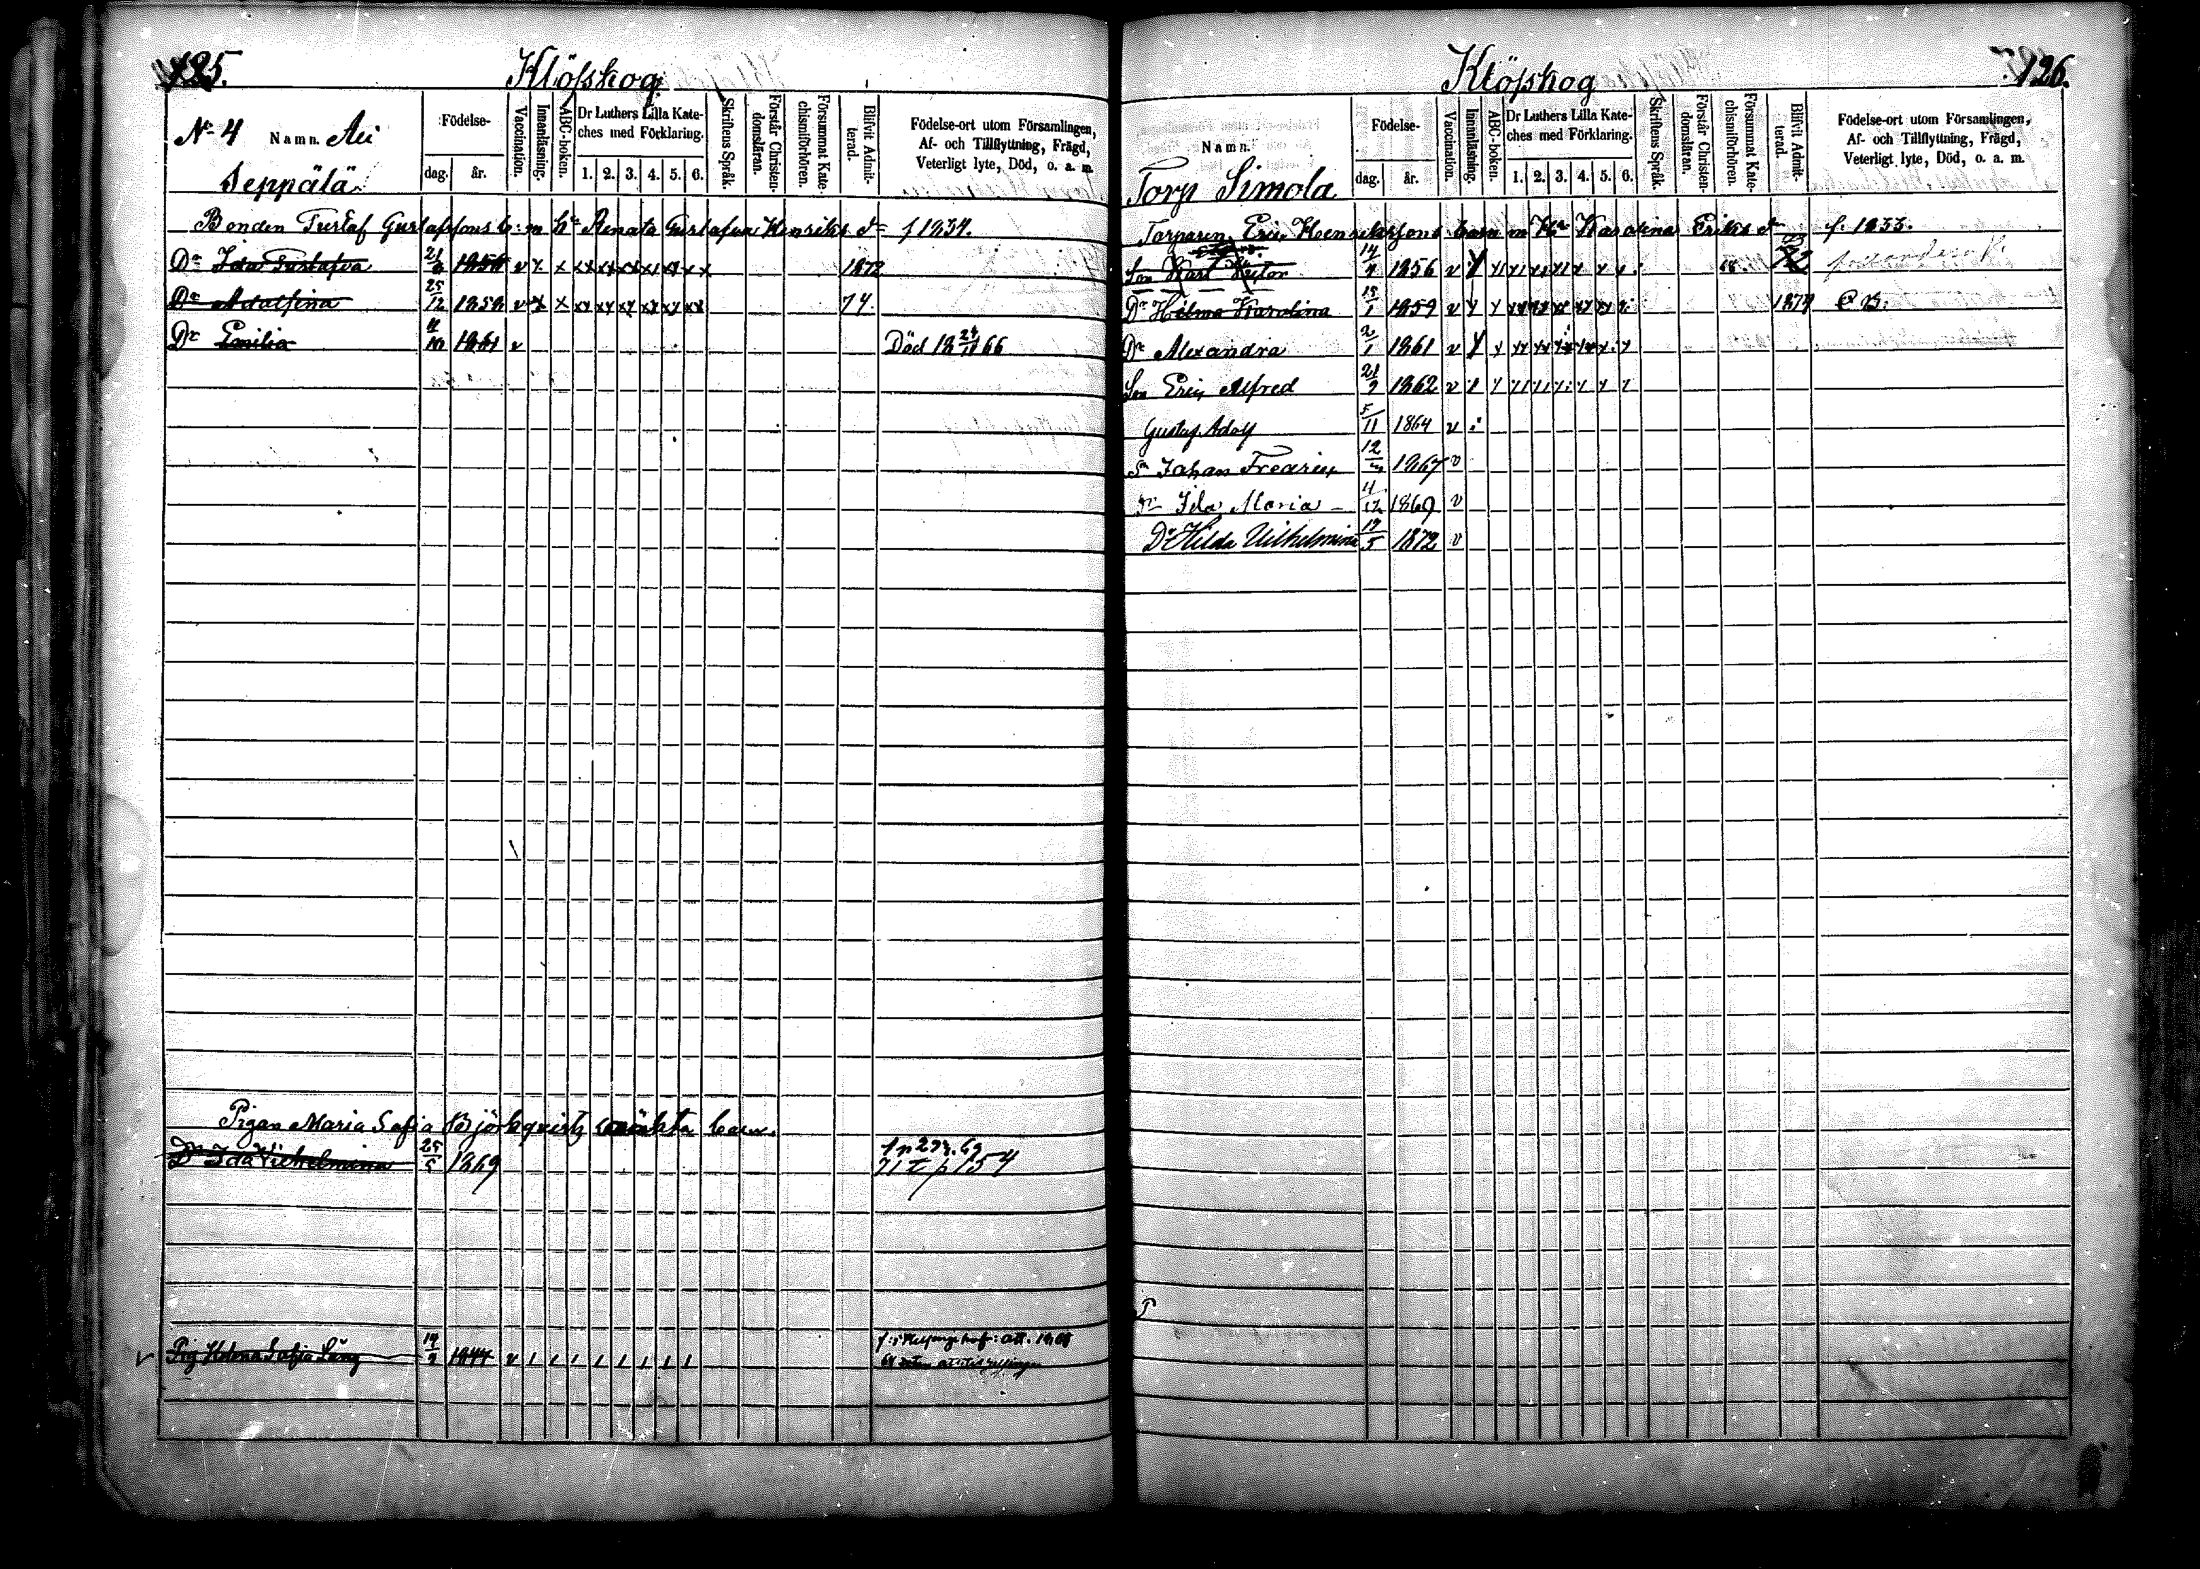 125.
Klöfskog
Nº 4 Namn. Ali
Seppälä
Födelse-
dag. år.
Vaccination.
Innanläsning.
ABC-boken.
Dr Luthers Lilla Kate-
ches med Förklaring.
1. 2. 3. 4. 5. 6.
Skriftens Språk.
Förstår Christen-
domsläran.
Försummat Kate-
chismiförhören.
Blifvit Admit-
terad.
Födelse-ort utom Församlingen,
Af- och Tillflyttning, Frägd,
Veterligt lyte, Död, o. a. m.
Bonden Gustaf Gustafssons b: m h:u Renata Gustafva Henriks dr f 1834.
Dr Ida Gustafva 21 1856 v x x xx xx xx xx xx x x 1872
Dr Adolfina 25/12 1858 v x x xx xx xx xx xx xx 74.
Dr Emilia 1861 v Död 18 66
Pigan Maria Sofia Björkqvists oäkta barn.
Dr Ida Vilhelmina 25/5 1869 p 154
v Pig Helena Sofia Sång 19/2 1844 v / / / / / / / / att. 1868
126.
Klöfskog
Namn.
Torp Simola
Födelse-
dag. år.
Vaccination.
Innanläsning.
ABC-boken.
Dr Luthers Lilla Kate-
ches med Förklaring.
1. 2. 3. 4. 5. 6.
Skriftens Språk.
Förstår Christen-
domsläran.
Försummat Kate-
chismiförhören.
Blifvit Admit-
terad.
Födelse-ort utom Församlingen,
Af- och Tillflyttning, Frägd,
Veterligt lyte, Död, o. a. m.
Torparen Eric Henrikssons barn m H:u Karolina Eriks dr f. 1833.
Son Karl Victor 14 1856 v
Dr Hilma Karolina 15/1 1859 v 1874
Dr Alexandra 2/1 1861 v
Son Eric Alfred 21 1862 v
Gustaf Adolf 5/11 1864 v
Sn Johan Fredric 12 1867 v
Dr Ida Maria 4/12 1869 v
Dr Hilda Vilhelmina 19/5 1872 v